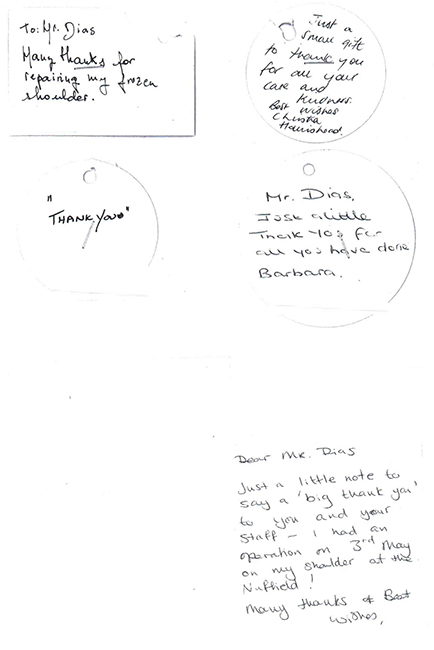 To: Mr. Dias
Many thanks for
repairing my frozen
shoulder.
Just a
small gift
to thank you
for all your
care and
kindness.
Best wishes
Christa
"
THANK YOU"
Mr. Dias,
Just a little
Thank You for
all you have done
Barbara.
Dear Mr. Dias
Just a little note to
say a 'big thank you'
to you and your
staff – I had an
operation on 3rd May
on my shoulder at the
Nuffield!
Many thanks & Best
wishes,